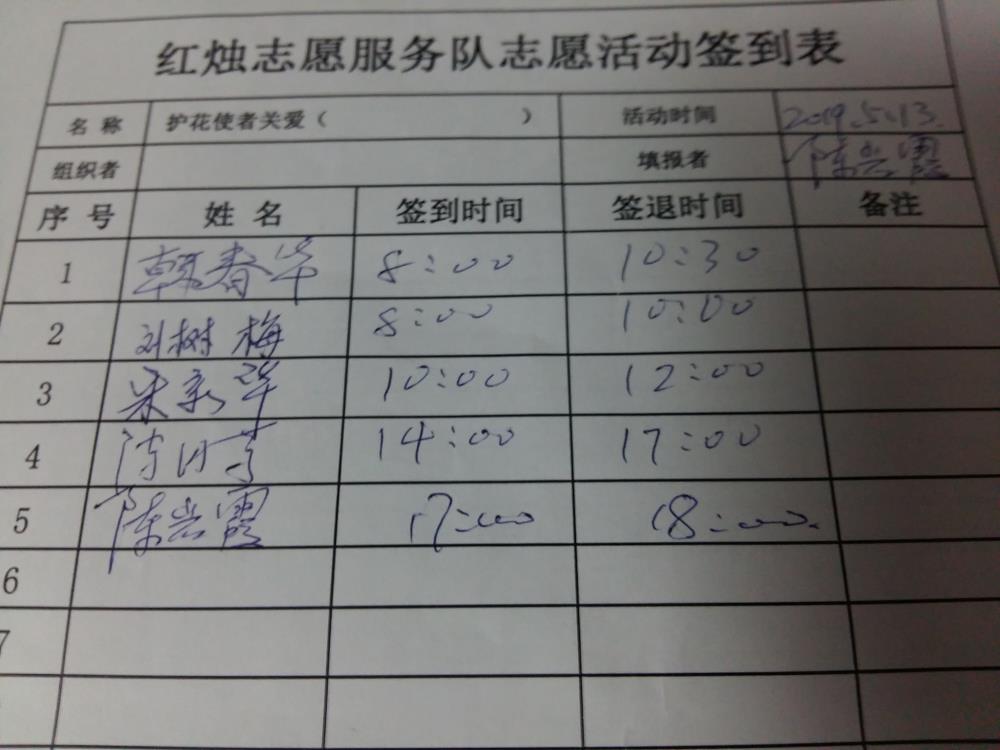 红烛志愿服务队志愿活动签到表
名称 护花使者关爱（ ） 活动时间 2019.5.13.
组织者 填报者 陈岩霞
序号 姓名 签到时间 签退时间 备注
1 韩春华 8:00 10:30
2 刘树梅 8:00 10:00
3 宋新华 10:00 12:00
4 14:00 17:00
5 陈岩霞 17:00 18:00.
6
7